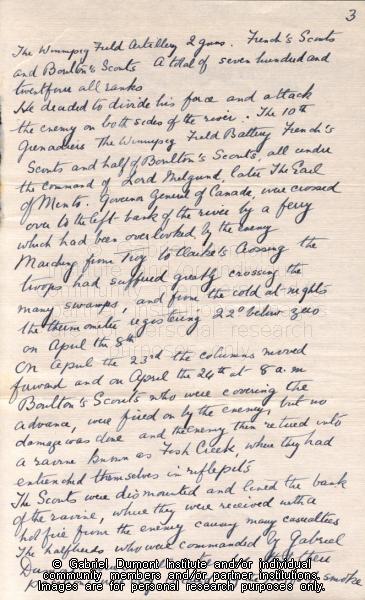 3
The Winnipeg Field Artillery 2 guns. French's Scouts
and Boulton's Scouts A total of seven hundred and
twentyfour all ranks
He decided to divide his force and attack
the enemy on both sides of the river. The 10th
Grenadiers The Winnipeg Field Battery French's
Scouts and half of Boulton's Scouts, all under
the command of Lord Melgund, later The Earl
of Minto. Governor General of Canada, were crossed
over to the left bank of the river by a ferry
which had been overlooked by the enemy
Marching from Troy to Clarke's Crossing the
troops had suffered greatly crossing the
many swamps, and from the cold at nights
the thermometer registering 22° below zero
on April the 8th
On April the 23rd the columns moved
forward and on April the 24th at 8 a.m
Boulton's Scouts who were covering the
advance, were fired on by the enemy, but no
damage was done and the enemy then retired into
a ravine known as Fish Creek, where they had
entrenched themselves in riflepits
The Scouts were dismounted and lined the bank
of the ravine, where they were received with a
hot fire from the enemy causing many casualties
The halfbreeds who were commanded by Gabriel
smoke
© Gabriel Dumont Institute and/or individual
community members and/or partner institutions.
Images are for personal research purposes only.